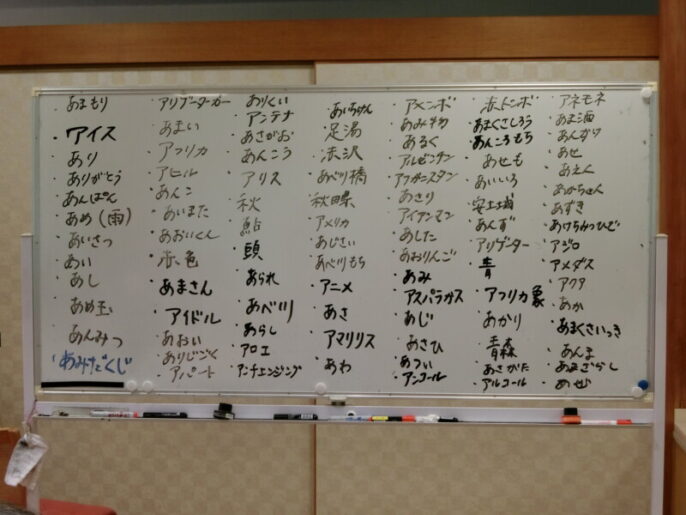 ・あまもり
・アイス
・あり
・ありがとう
・あんぱん
・あめ(雨)
・あいさつ
・あい
・あし
・あめ玉
・あんみつ
・あみだくじ
・アリゲーターガー
・あまい
・アフリカ
・アヒル
・あんこ
・あいまた
・あおいくん
・赤色
・あまさん
・アイドル
・あおい
・ありじごく
・アパート
・ありくい
・アンテナ
・あさがお
・あんこう
・アリス
・秋
・鮎
・頭
・あられ
・あべ川
・あらし
・アロエ
・アンチエンジング
・あいちけん
・足湯
・あべり橋
・秋田県
・アメリカ
・あじさい
・あべ川もち
・アニメ
・あさ
・アマリリス
・あわ
・アメンボ
・あみ物
・あるく
・アルゼンチン
・アフガニスタン
・あさり
・アイアンマン
・あした
・あおりんご
・あみ
・アスパラガス
・あじ
・あさひ
・あつい
・アンコール
・赤トンボ
・あまくさしろう
・あんころもち
・あせも
・あいいろ
・安土城
・あんず
・アリゲーター
・青
・アフリカ象
・あかり
・青森
・あさがた
・アルコール
・アネモネ
・あま酒
・あせ
・あえん
・あかちゃん
・あずき
・あけちみつひで
・アジロ
・アメダス
・アクア
・あか
・あまくさいっき
・あんま
・あまざらし
・あぜ